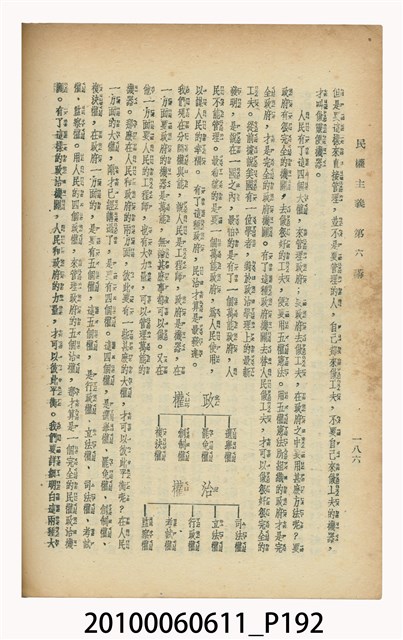 民權主義 第六講
一八六
但是要這樣來直接管理，並不是要管理的人，自己都來做工夫，不要自己來做工夫的機器，
才叫做靈便機器。
人民有了這四個大權，來管理政府，要政府去做工夫，在政府之中要用甚麼方法呢？要
政府有很完全的機關，去做很好的工夫，便要用五權憲法。用五權憲法所組織的政府，才是完
全政府，才是完全的政府機關。有了這種的政府機關去替人民做工夫，才可以做很好很完全的
工夫。從前說美國有一位學者，對於政治學理上的最新
發明，是說在一國之內，最怕的是有了一個萬能政府，人
民不能管理。最希望的是要一個萬能政府，為人民使用，
以謀人民的幸福。有了這種政府，民治才算是最發達。
我們現在分開權與能，說人民是工程師，政府是機器。在
一方面要政府的機器是萬能，無論甚麼事都可以做。又在
他一方面要人民的工程師，也有大力量，可以管理萬能的
機器。那麼在人民和政府的兩方面，彼此要有一些甚麼的大權，才可以彼此平衡呢？在人民
一方面的大權，剛才已經講過了，是要有四個權。這四個權，是選舉權、罷免權、創制權、
複決權。在政府一方面的，是要有五個權，這五個權，是行政權、立法權、司法權、考試
權、監察權。用人民的四個政權，來管理政府的五個治權，那才算是一個完全的民權政治機
關。有了這樣的政治機關，人民和政府的力量，才可以彼此平衡。我們要詳細明白這兩種大
政權
選舉權
罷免權
創制權
複決權
治權
司法權
立法權
行政權
考試權
監察權
20100060611_P192